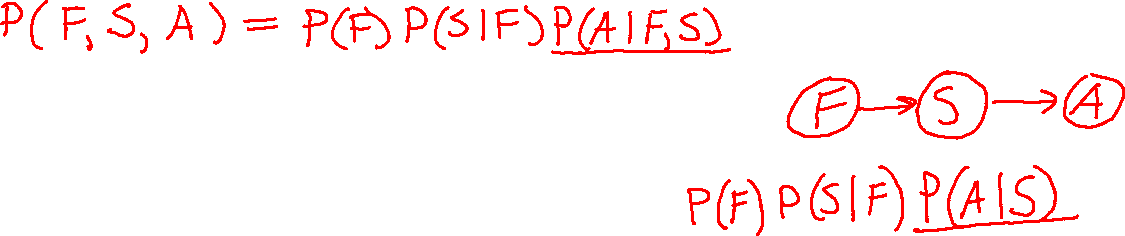 P(F,S,A) = P(F) P(S|F) P(A|F,S)
F → S → A
P(F) P(S|F) P(A|S)